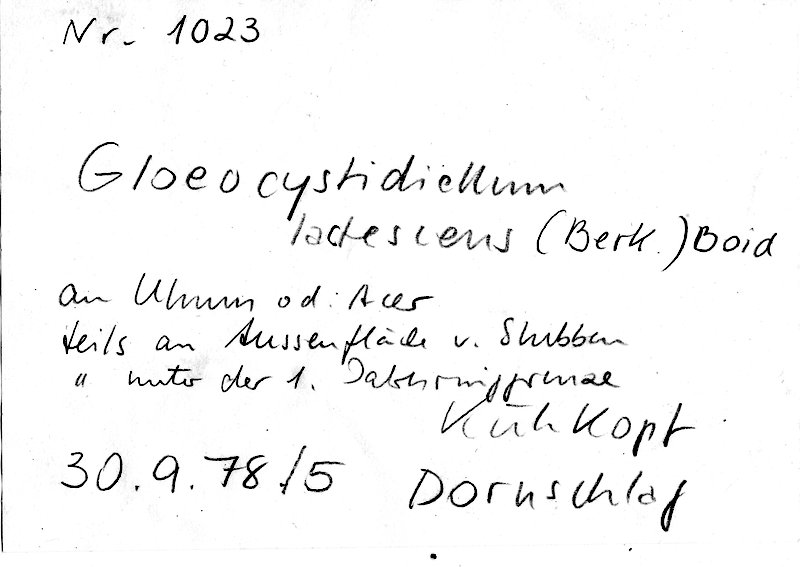 Nr. 1023
Gloeocystidiellum
lactescens (Berk.) Boid
an Ulmus od. Acer
teils an Aussenfläche v. Stubben
" unter der 1.
Kühkopf
30.9.78/5 Dornschlag